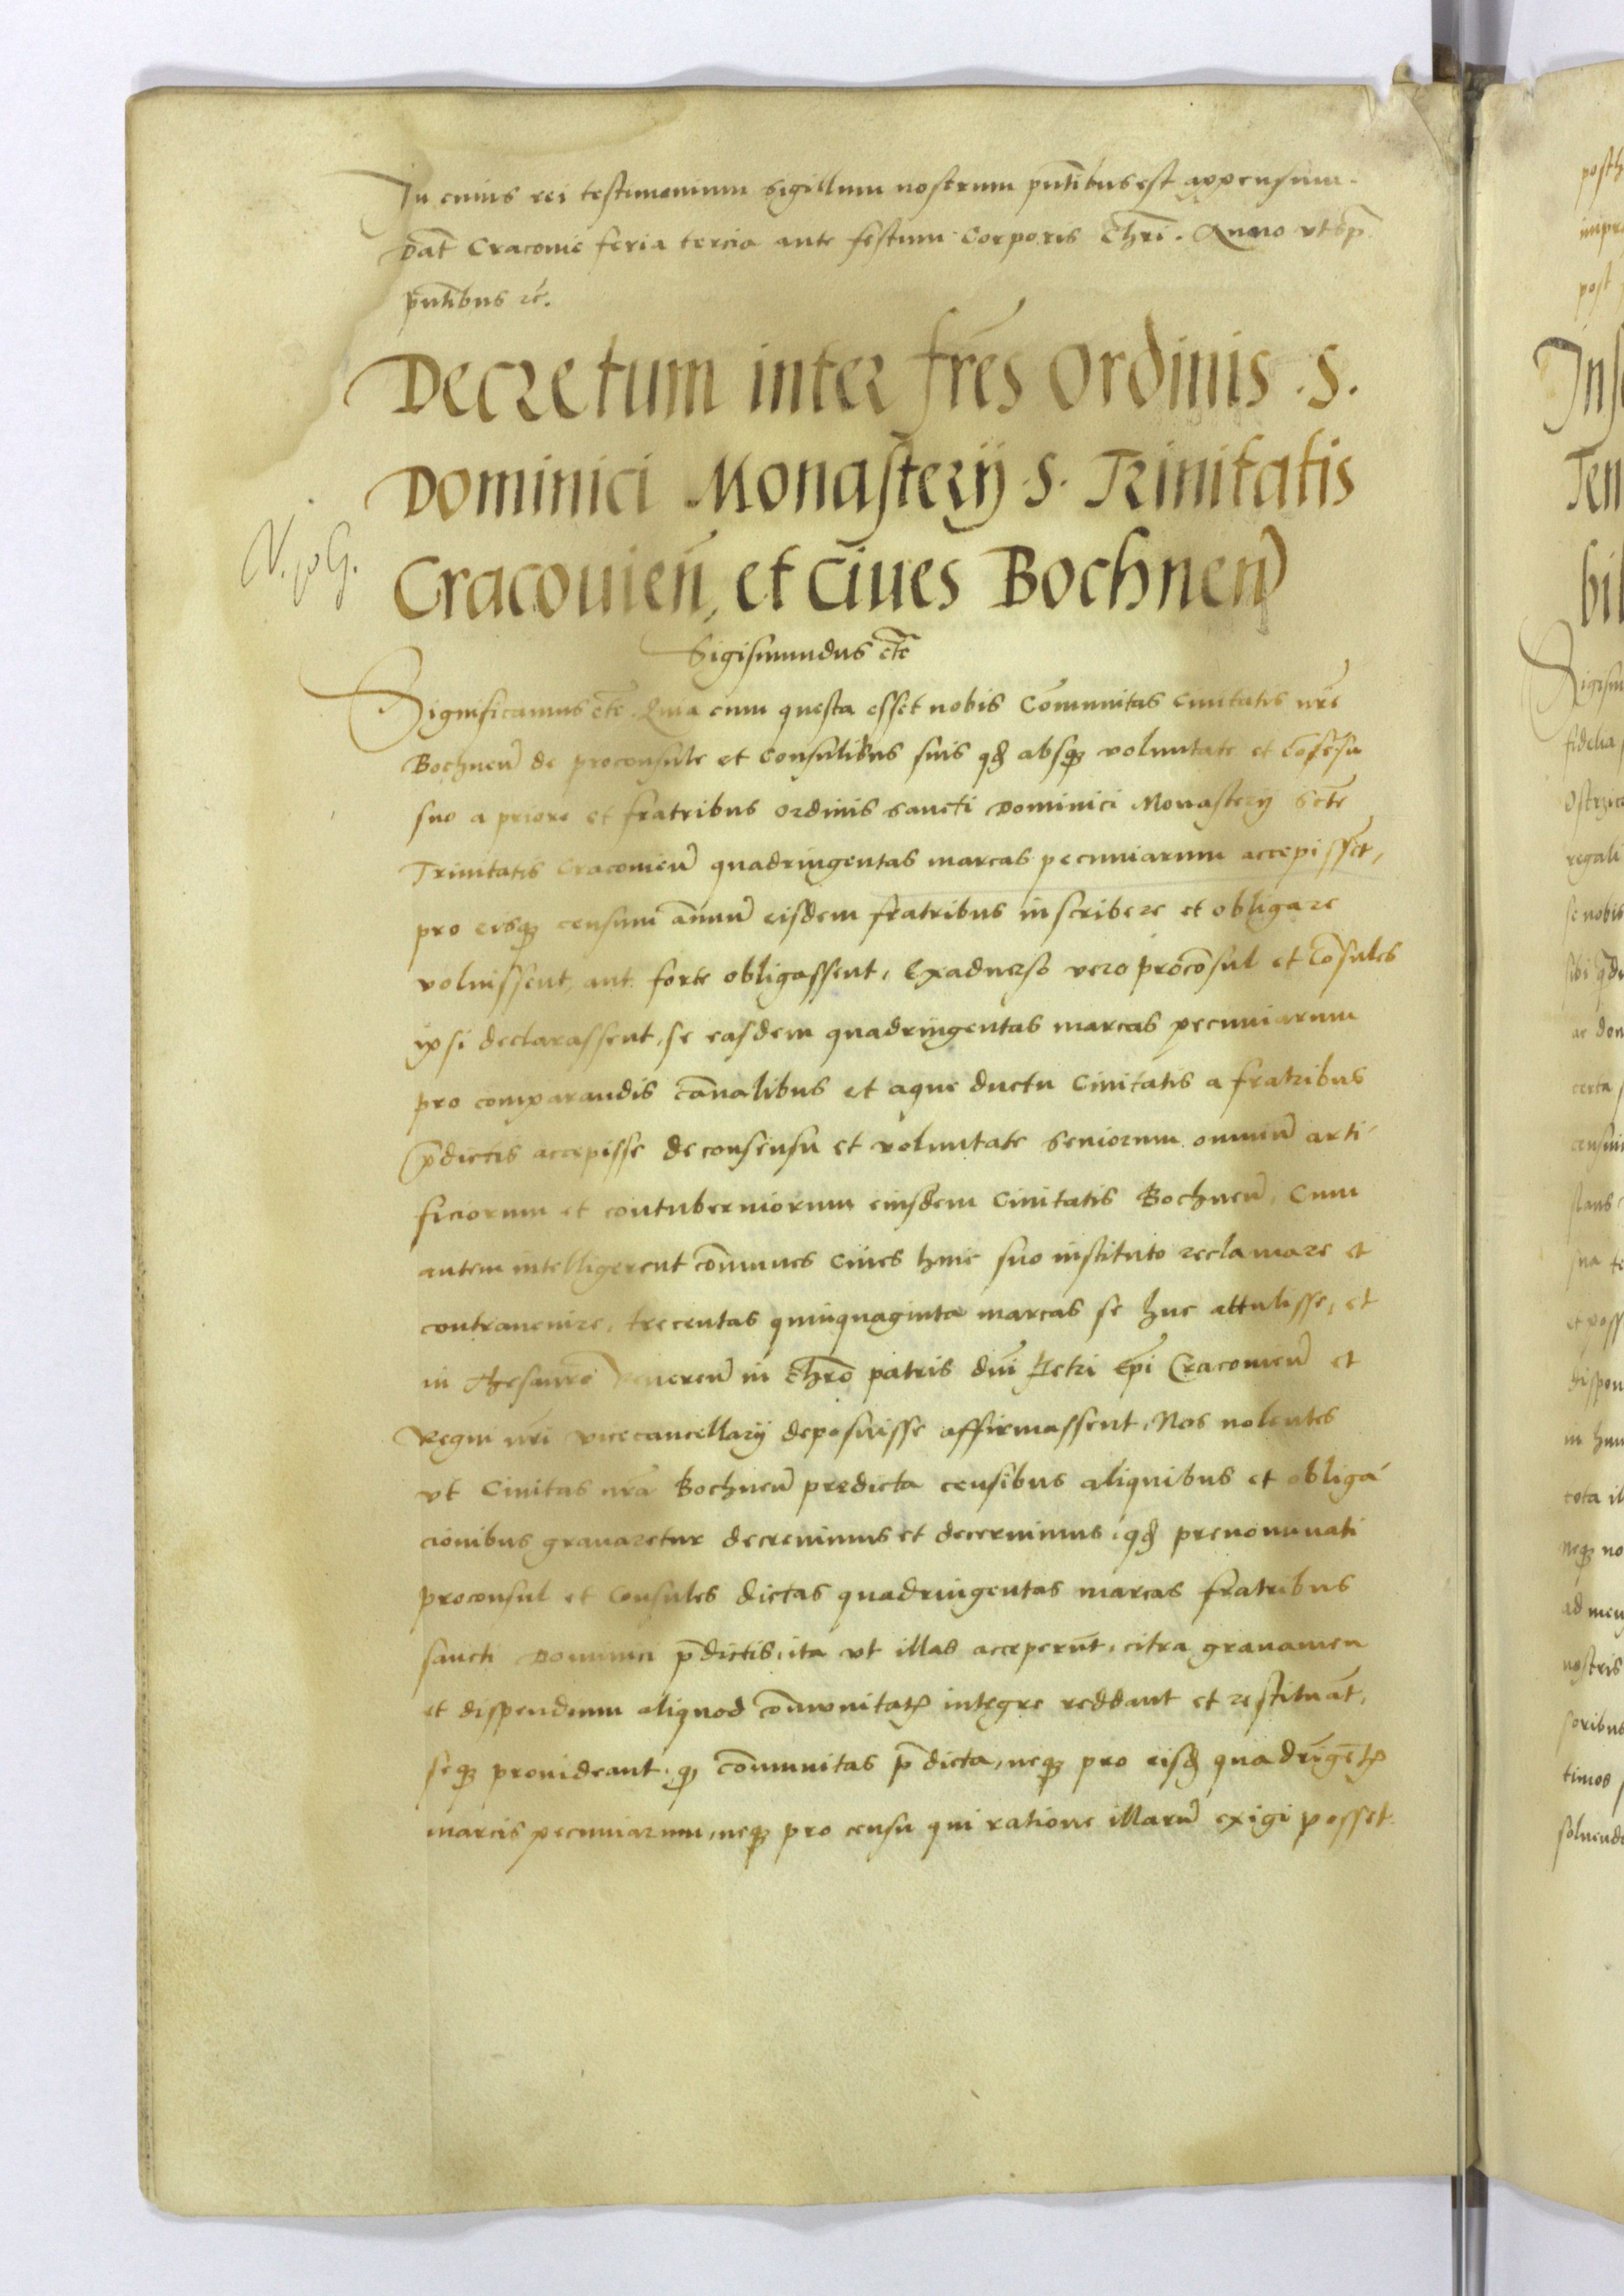 In cuius rei testimonium sigillum nostrum pn̄tibus est appensum.
Dat̄ Cracouie feria tercia ante festum Corporis Chrī. Anno vt sp̄
pn̄tibus rc̄.
Decretum inter frēs Ordinis .S.
Dominici Monasterij .S. Trinitatis
Cracouień, et Ciues Bochneń
Sigismundus etc̄
Significamus etc̄ Quia cum questa esset nobis Com̄unitas Ciuitatis nrē
Bochneń de proconsule et Consulibus suis qđ absqꝫ voluntate et Cōsēsu
suo a priore et fratribus ordinis sancti Dominici Monasterij Sctē
Trinitatis Cracouień quadringentas marcas pecuniarum accepissēt,
pro eisqꝫ censum annuū eisdem fratribus inscribere et obligare
voluissent, aut forte obligassent, Exaduerso vero procōsul et Cōsules
ipsi declarassent, se easdem quadringentas marcas pecuniarum
pro comparandis canalibus et aque ductu Ciuitatis a fratribus
p̄dictis accepisse de consensu et voluntate seniorum omniū arti-
ficiorum et contuberniorum eiusdem Ciuitatis Bochneń, Cum
autem intelligerent cōmunes Ciues huic suo instituto reclamare et
contrauenire, trecentas quinquaginta marcas se huc attulisse, et
in Thesauro Venereń in Chrō patris dnī Petri Epī Cracouień et
Regni nrī vicecancellarij deposuisse affirmassent, Nos nolentes
vt Ciuitas nrā Bochneń predicta censibus aliquibus et obliga-
cionibus grauaretur decreuimus et decernimus, qđ prenominati
proconsul et Consules dictas quadringentas marcas fratribus
sancti Dominici p̄dictis, ita vt illas acceperūt, citra grauamen
et dispendium aliquod cōmunitatꝭ integre reddant et restituāt,
seqꝫ prouideant, qꝫ cōmunitas p̄dicta, neqꝫ pro eisđ quadrīgētꝭ
marcis pecuniarum, neqꝫ pro censu qui ratione illarū exigi posset